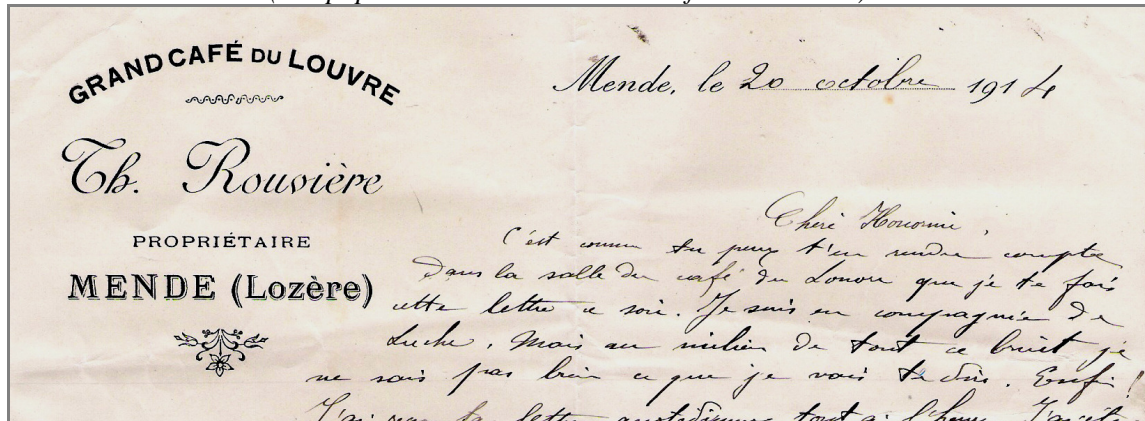 GRAND CAFÉ DU LOUVRE
Th. Rouvière
PROPRIÉTAIRE
MENDE (Lozère)
Mende, le 20 octobre 1914
Cheré
C'est comme tu peux t'en rendre compte
dans la salle du café du Louvre que je te fais
cette lettre ce soir. Je suis en compagnie de
Luche. Mais au milieu de tout ce bruit je
ne sais pas bien ce que je vais te dire. Enfin!
J'ai reçu ta lettre quotidienne tout à l'heure.